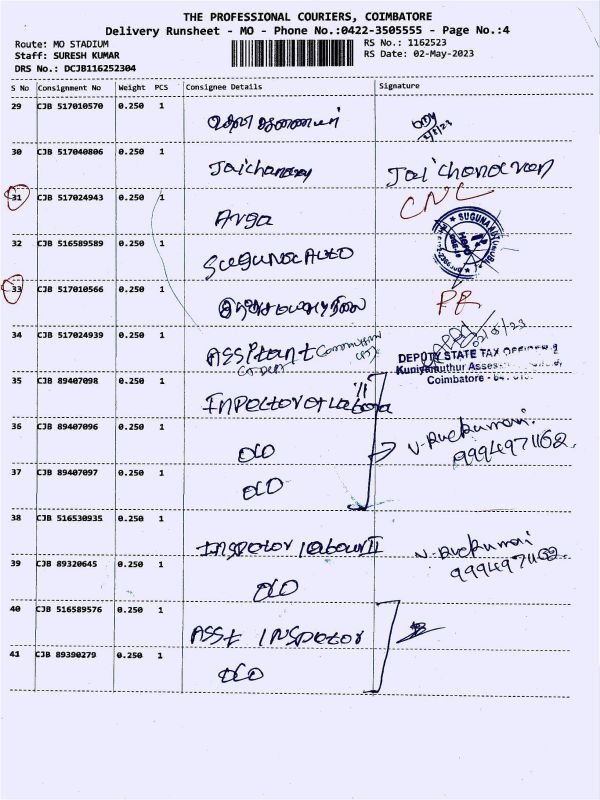 THE PROFESSIONAL COURIERS, COIMBATORE
Delivery Runsheet - MO - Phone No.:0422-3505555 - Page No.:4
Route: MO STADIUM
Staff: SURESH KUMAR
DRS No.: DCJB116252304
RS No.: 1162523
RS Date: 02-May-2023
S No Consignment No Weight PCS Consignee Details Signature
29 CJB 517010570 0.250 1
30 CJB 517040806 0.250 1 Jaichandran Jaichandran
31 CJB 517024943 0.250 1 Arga CNC
32 CJB 516589589 0.250 1 Suguna Auto
33 CJB 517010566 0.250 1
34 CJB 517024939 0.250 1 ASSitant
DEPUTY STATE TAX OFFICER
Kuniyamuthur
Coimbatore
35 CJB 89407098 0.250 1 Inpector of Labora
36 CJB 89407096 0.250 1 DO
9994971162
37 CJB 89407097 0.250 1 DO
38 CJB 516530935 0.250 1 Inspotor labour II
39 CJB 89320645 0.250 1 DO
9994971162
40 CJB 516589576 0.250 1 ASSt INSpotor
41 CJB 89390279 0.250 1 DO